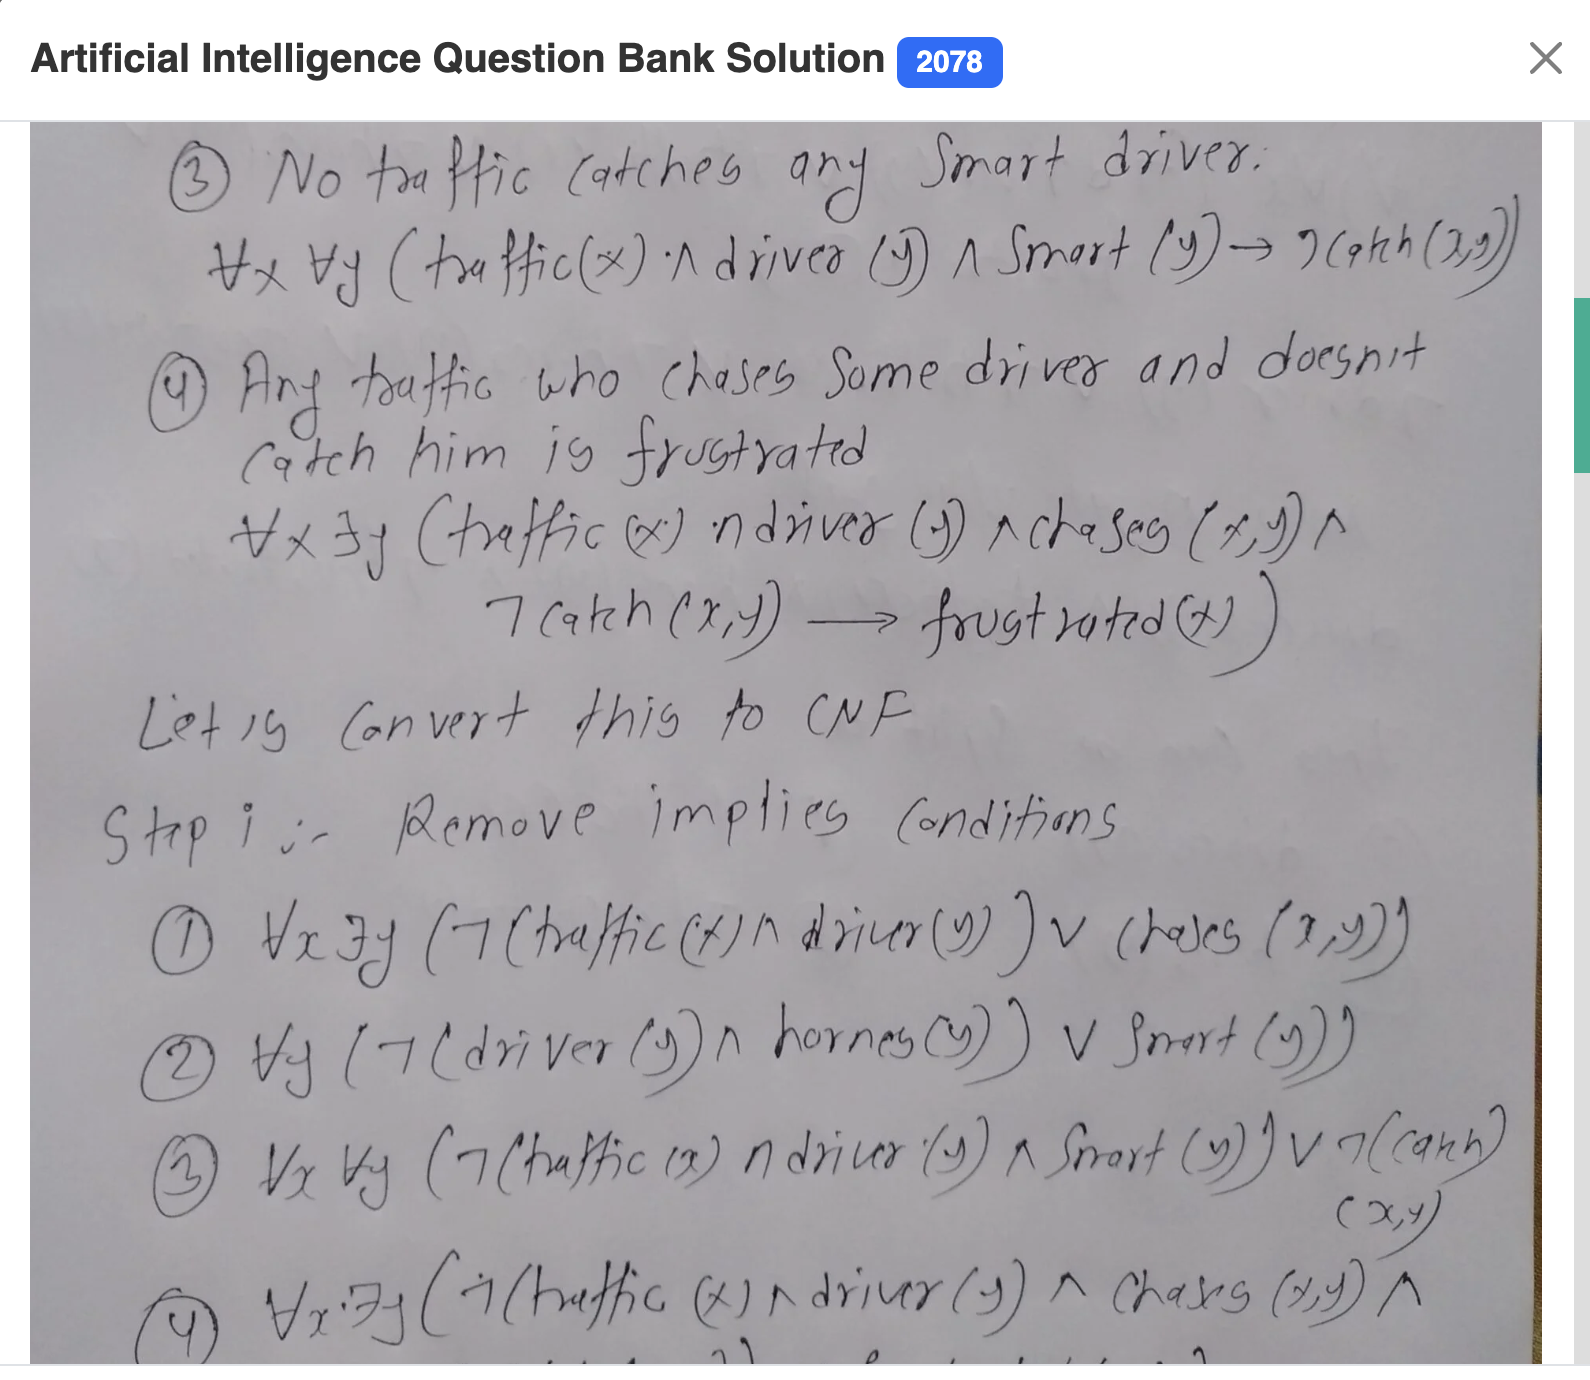 Artificial Intelligence Question Bank Solution 2078
③ No traffic catches any smart driver.
∀x ∀y (traffic(x) ∧ driver (y) ∧ Smart (y) → ¬catch (x,y))
④ Any traffic who chases some driver and doesn't
catch him is frustrated
∀x ∃y (traffic (x) ∧ driver (y) ∧ chases (x,y) ∧
¬catch (x,y) → frustrated(x))
Let is convert this to CNF
Step i :- Remove implies conditions
① ∀x ∃y (¬(traffic (x) ∧ driver(y)) ∨ chases (x,y))
② ∀y (¬(driver (y) ∧ hornes(y)) ∨ Smart (y))
③ ∀x ∀y (¬(traffic (x) ∧ driver (y) ∧ Smart (y)) ∨ ¬(catch)
(x,y)
④ ∀x ∃y (¬(traffic (x) ∧ driver (y) ∧ chases (x,y) ∧